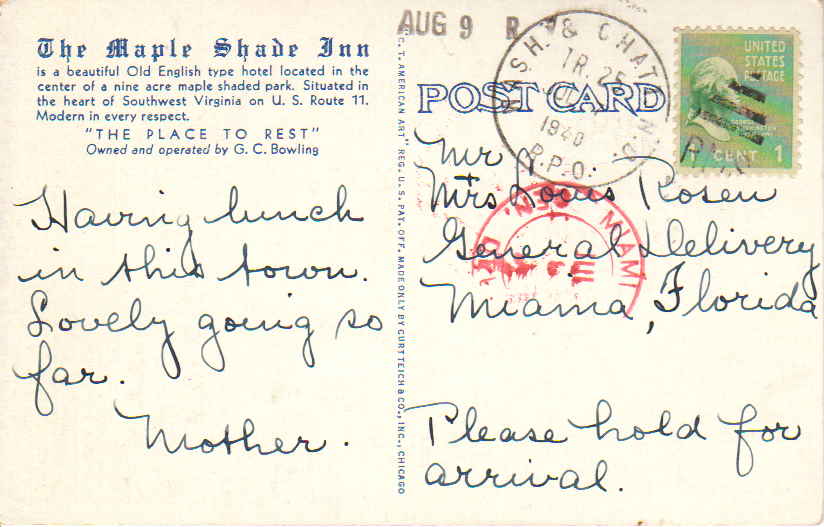 The Maple Shade Inn
is a beautiful Old English type hotel located in the
center of a nine acre maple shaded park. Situated in
the heart of Southwest Virginia on U. S. Route 11.
Modern in every respect.
"THE PLACE TO REST"
Owned and operated by G. C. Bowling
Having lunch
in this town.
Lovely going so
far.
Mother.
C. T. AMERICAN ART" REG. U. S. PAT. OFF. MADE ONLY BY CURT TEICH & CO., INC., CHICAGO
AUG 9
POST CARD
NASH. & CHAT.
TR. 25
1940
R.P.O.
UNITED
STATES
POSTAGE
1 CENT 1
Mr +
Mrs Louis Rosen
General Delivery
Miama, Florida
MIAMI
GEN. DEL.
Please hold for
arrival.